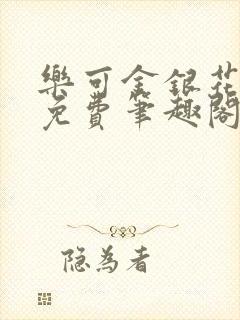 樂可金銀花
免費筆趣閣
隐為者